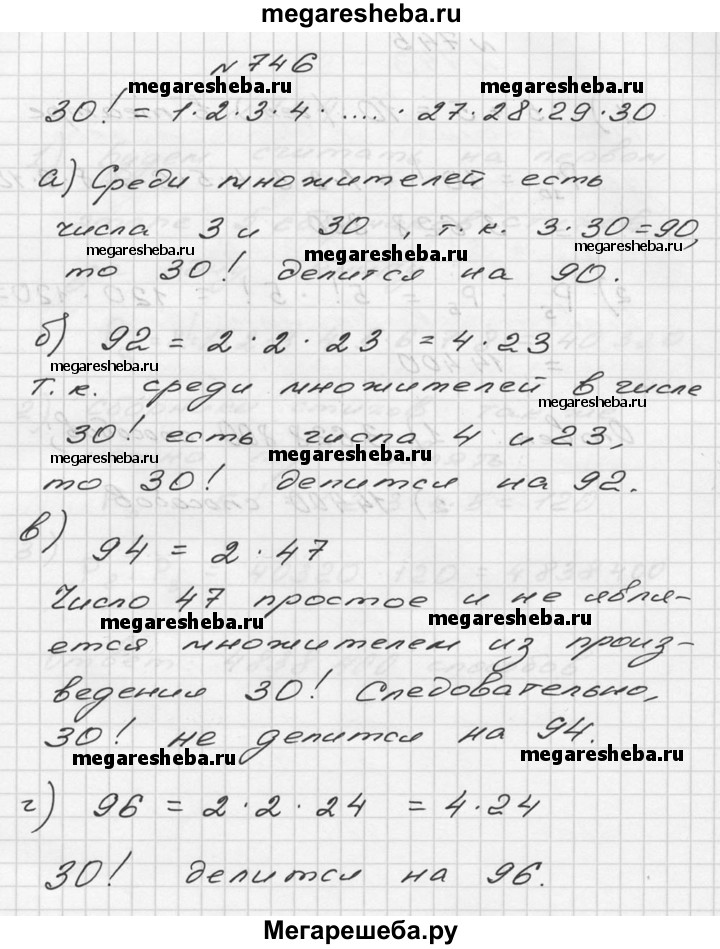 megaresheba.ru
№746
megaresheba.ru megaresheba.ru
30! = 1·2·3·4·....·27·28·29·30
а) Среди множителей есть
числа 3 и 30, т.к. 3·30=90,
megaresheba.ru megaresheba.ru
то 30! делится на 90.
б) 92 = 2·2·23 = 4·23
megaresheba.ru
т.к. среди множителей в числе
megaresheba.ru
30! есть числа 4 и 23,
megaresheba.ru megaresheba.ru
то 30! делится на 92.
в) 94 = 2·47
Число 47 простое и не явля-
megaresheba.ru megaresheba.ru
ется множителем из произ-
ведения 30! Следовательно,
30! не делится на 94.
megaresheba.ru megaresheba.ru
г) 96 = 2·2·24 = 4·24
30! делится на 96.
Мегарешеба.ру